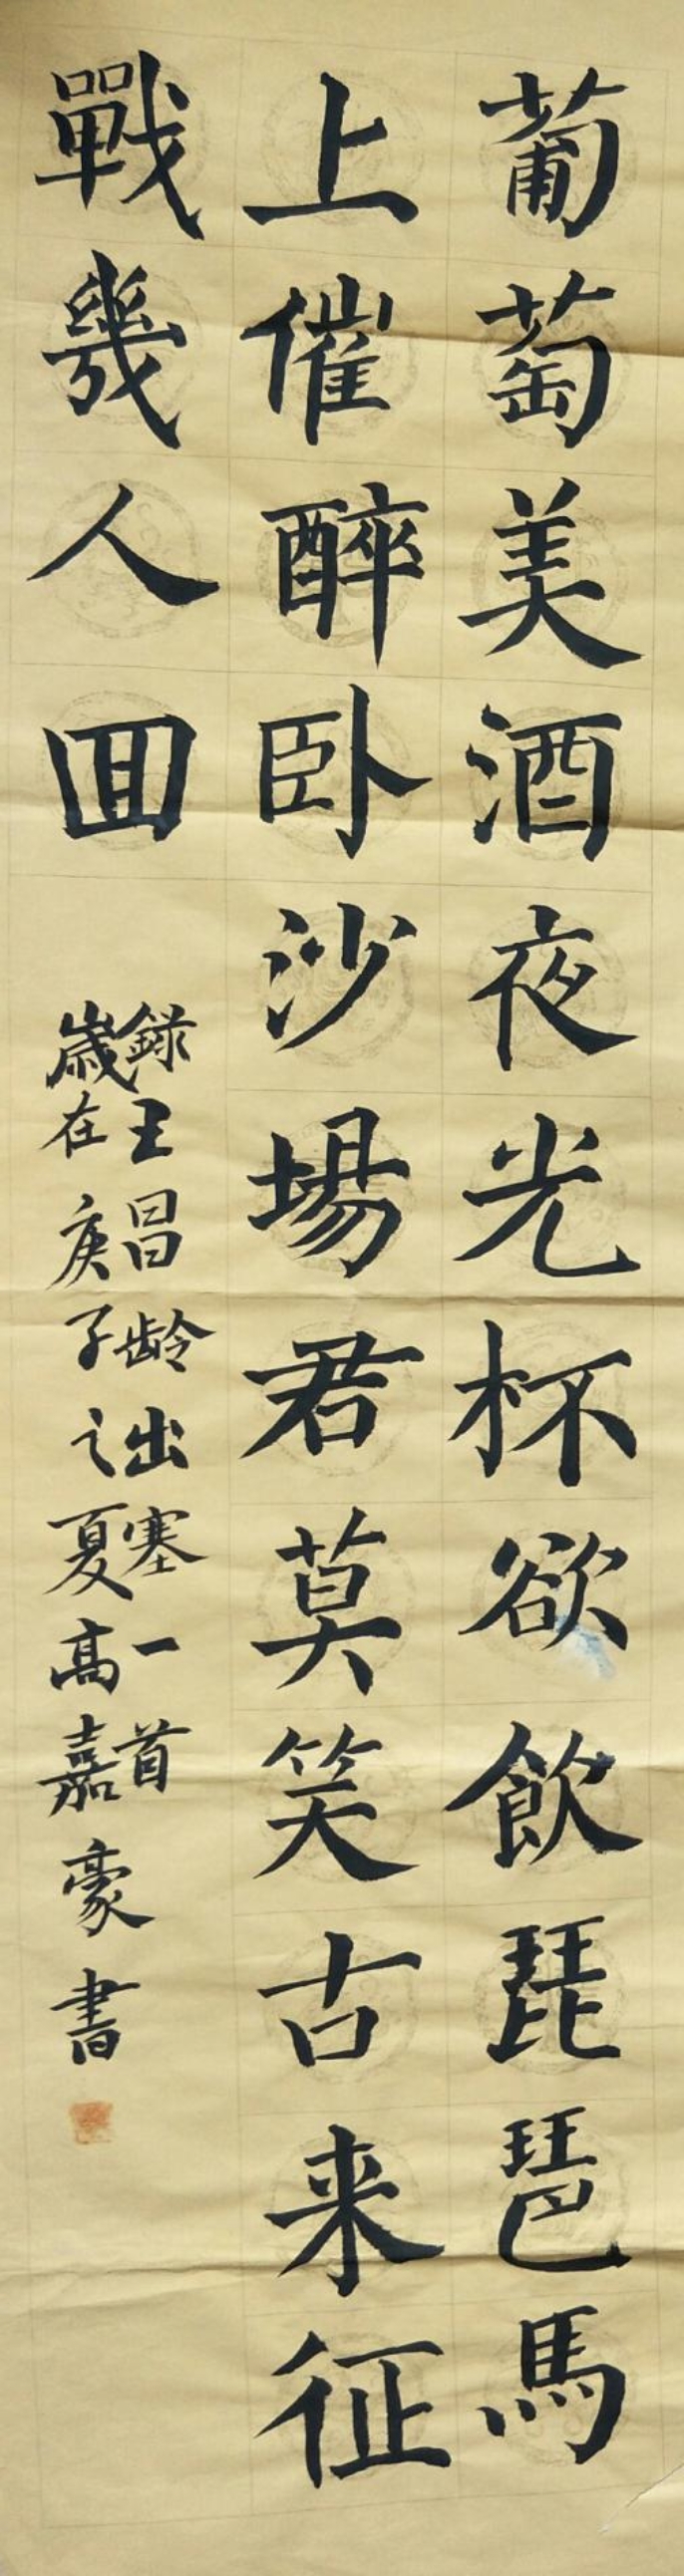 葡萄美酒夜光杯欲飲琵琶馬
上催醉卧沙場君莫笑古来征
戰幾人回
錄王昌龄出塞一首
歳在庚子之夏高嘉豪書